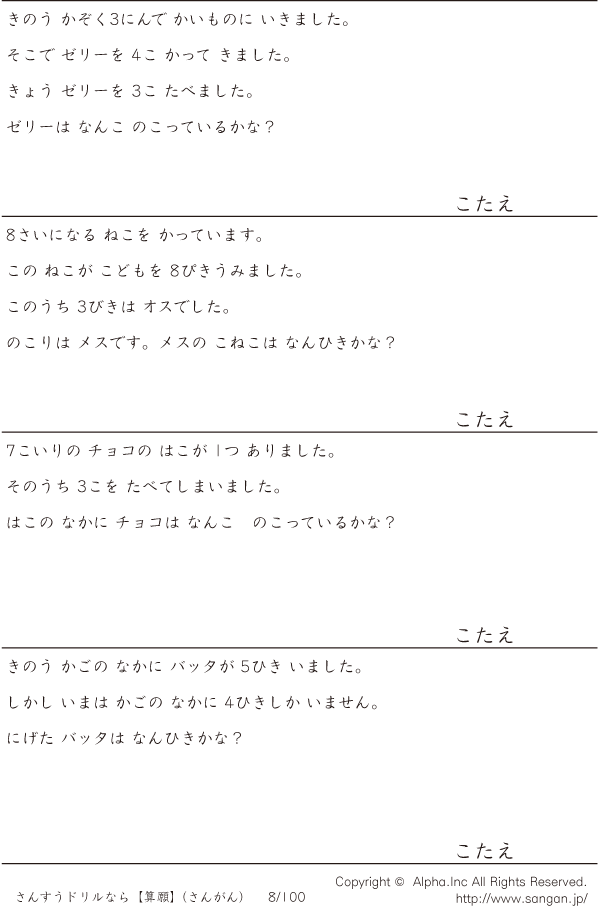 きのう かぞく3にんで かいものに いきました。
そこで ゼリーを 4こ かって きました。
きょう ゼリーを 3こ たべました。
ゼリーは なんこ のこっているかな？
こたえ
8さいになる ねこを かっています。
この ねこが こどもを 8ぴきうみました。
このうち 3びきは オスでした。
のこりは メスです。メスの こねこは なんひきかな？
こたえ
7こいりの チョコの はこが 1つ ありました。
そのうち 3こを たべてしまいました。
はこの なかに チョコは なんこ　のこっているかな？
こたえ
きのう かごの なかに バッタが 5ひき いました。
しかし いまは かごの なかに 4ひきしか いません。
にげた バッタは なんひきかな？
こたえ
Copyright © Alpha.Inc All Rights Reserved.
さんすうドリルなら【算願】（さんがん）　8/100　http://www.sangan.jp/